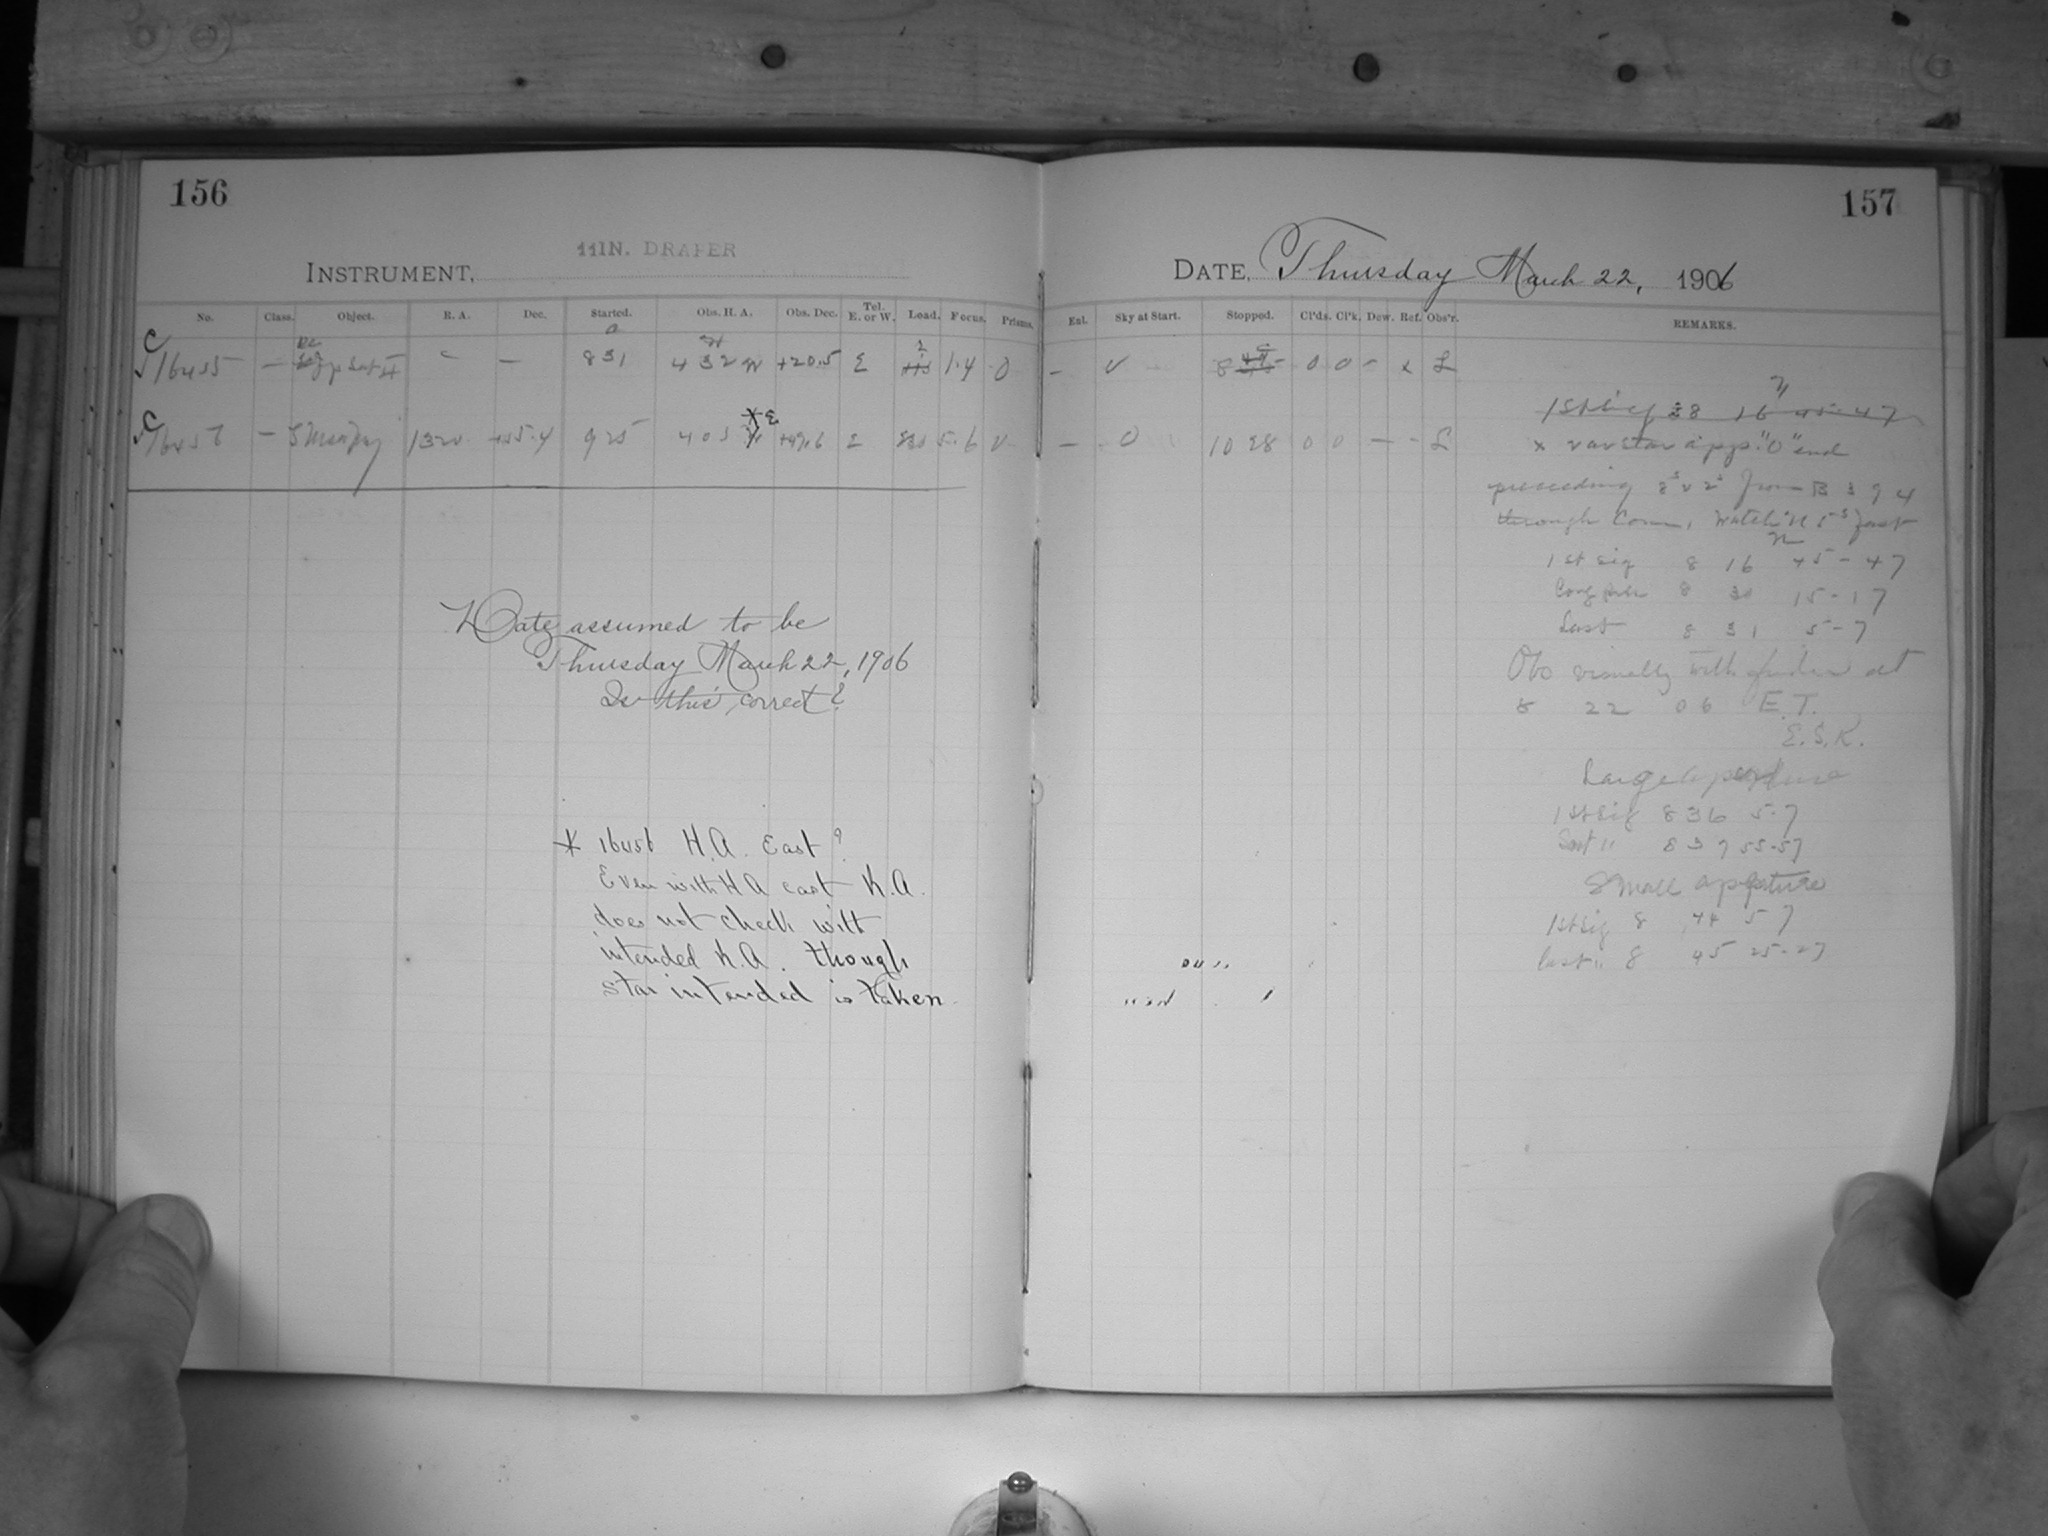 156
11IN. DRAPER
INSTRUMENT,
No. Class. Object. R. A. Dec. Started. Obs. H. A. Obs. Dec. Tel. E. or W. Load. Focus. Prisms.
C 16455 — — 8 31 4 32 W +20.5 E 1.4 0
C 16456 — 13 20 +55.4 9 25 4 03 * E E 5.6
Date assumed to be
Thursday March 22, 1906
Is this correct?
* 16456 H.A. East?
Even with H A east R.A.
does not check with
intended R.A. though
star intended is taken
157
DATE, Thursday March 22, 1906
Ent. Sky at Start. Stopped. Cl'ds. Cl'k. Dew. Ref. Obs'r. REMARKS.
— 8 0 0 – x L
— 0 10 28 0 0 — - L
1st sig 8 16 45-47
x var star app. "0" end
preceeding from B 394
through Comm. Watch fast
1st sig 8 16 45-47
8 30 15-17
Last 8 31 5-7
Obs visually with finder at
8 22 06 E.T.
E.S.K.
Large aperture
1st sig 8 36 5-7
Last " 8 37 55-57
Small apperture
1st sig 8 44 5 7
last " 8 45 25-27